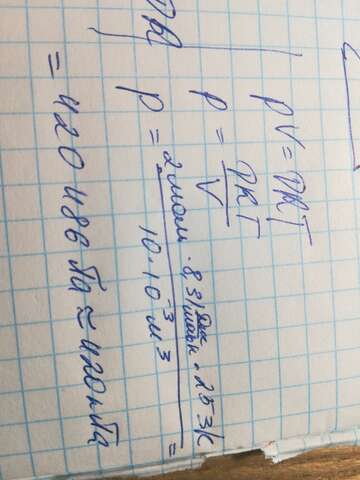 pV = νRT
p = νRT / V
p = 2 моль · 8,31 Дж/моль·К · 253К / 10 · 10⁻³ м³ =
= 420486 Па ≈ 420кПа